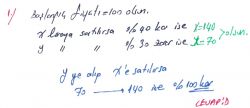 1) Başlangıç fiyatı = 100 olsun.
x liraya satılırsa % 40 kar ise x=140
y " " % 30 zarar ise x=70 > olsun.
y ye alıp x'e satılırsa
70 → 140 ise % 100 kar
(CEVAP:D